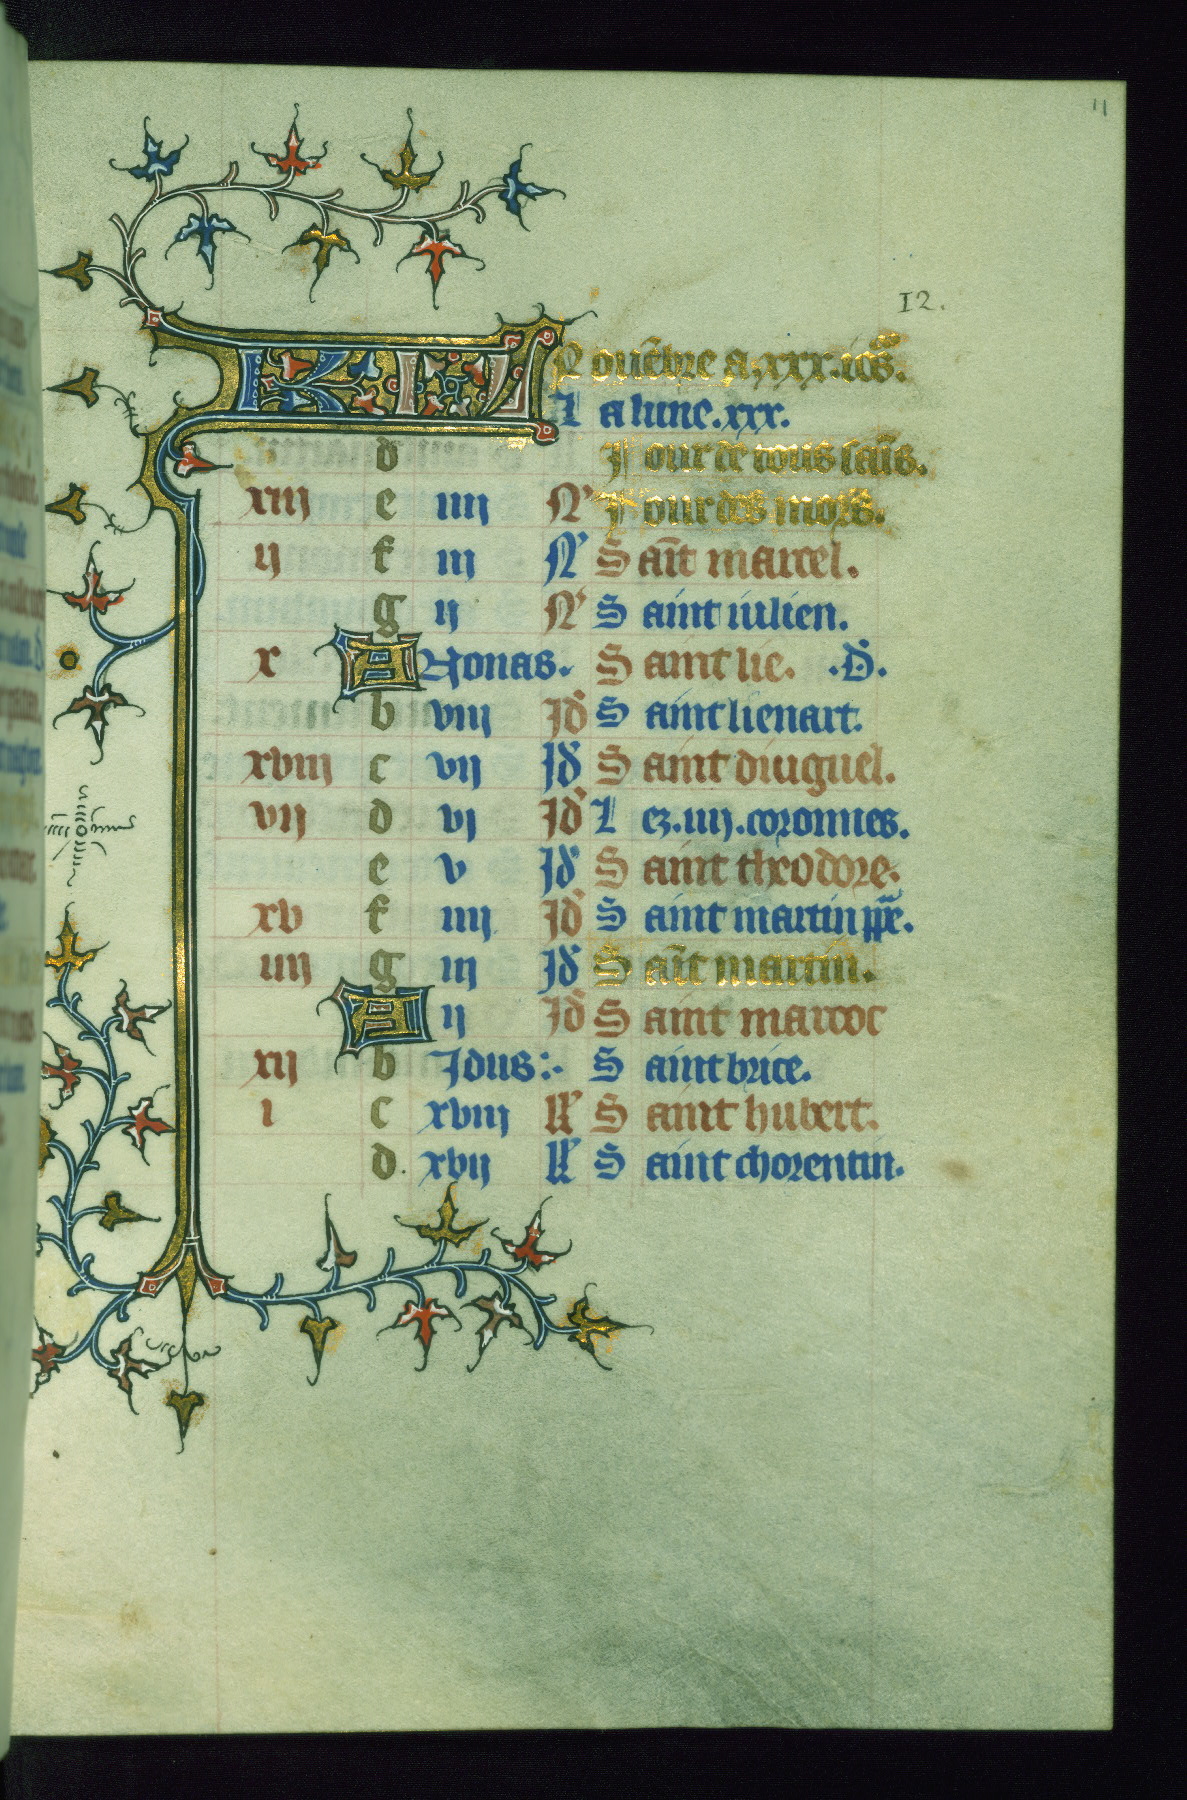 11
12.
KL Nouẽbre a. xxx. iors.
La lune. xxx.
d Jour de tous sais.
xiii e iiii N' Jour des mors.
ii f iii N' Sait marcel.
g ii N' Saint iulien.
x A Nonas. Saint lie. .D.
b viii Id' Saint lienart.
xviii c vii Id' Saint diuguel.
vii d vi Id' Lez. iiii. coronnes.
e v Id' Saint theodore.
xv f iiii Id' Saint martin ppe.
iiii g iii Id' Sait martin.
A ii Id' Saint marcoc
xii b Idus :. Saint brice.
i c xviii kl' Saint hubert.
d. xvii kl' Saint chorentin.